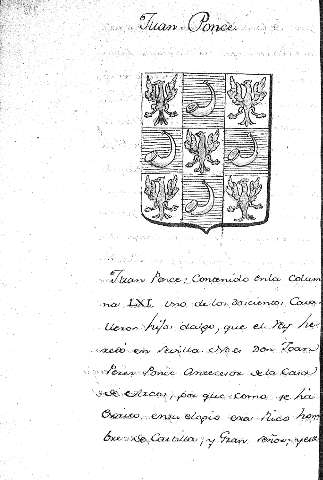 Juan Ponce.
Juan Ponce; Contenido en la Colum
na LXI. Uno de los doscientos Cava
lleros hijos dalgo, que el Rey he
redó en Sevilla. Don Juan
Perez Ponce Antecesor de la Casa
de Arcos; por que como se ha
en su elogio era Rico hom
bre de Castilla; y Gran Señor; y